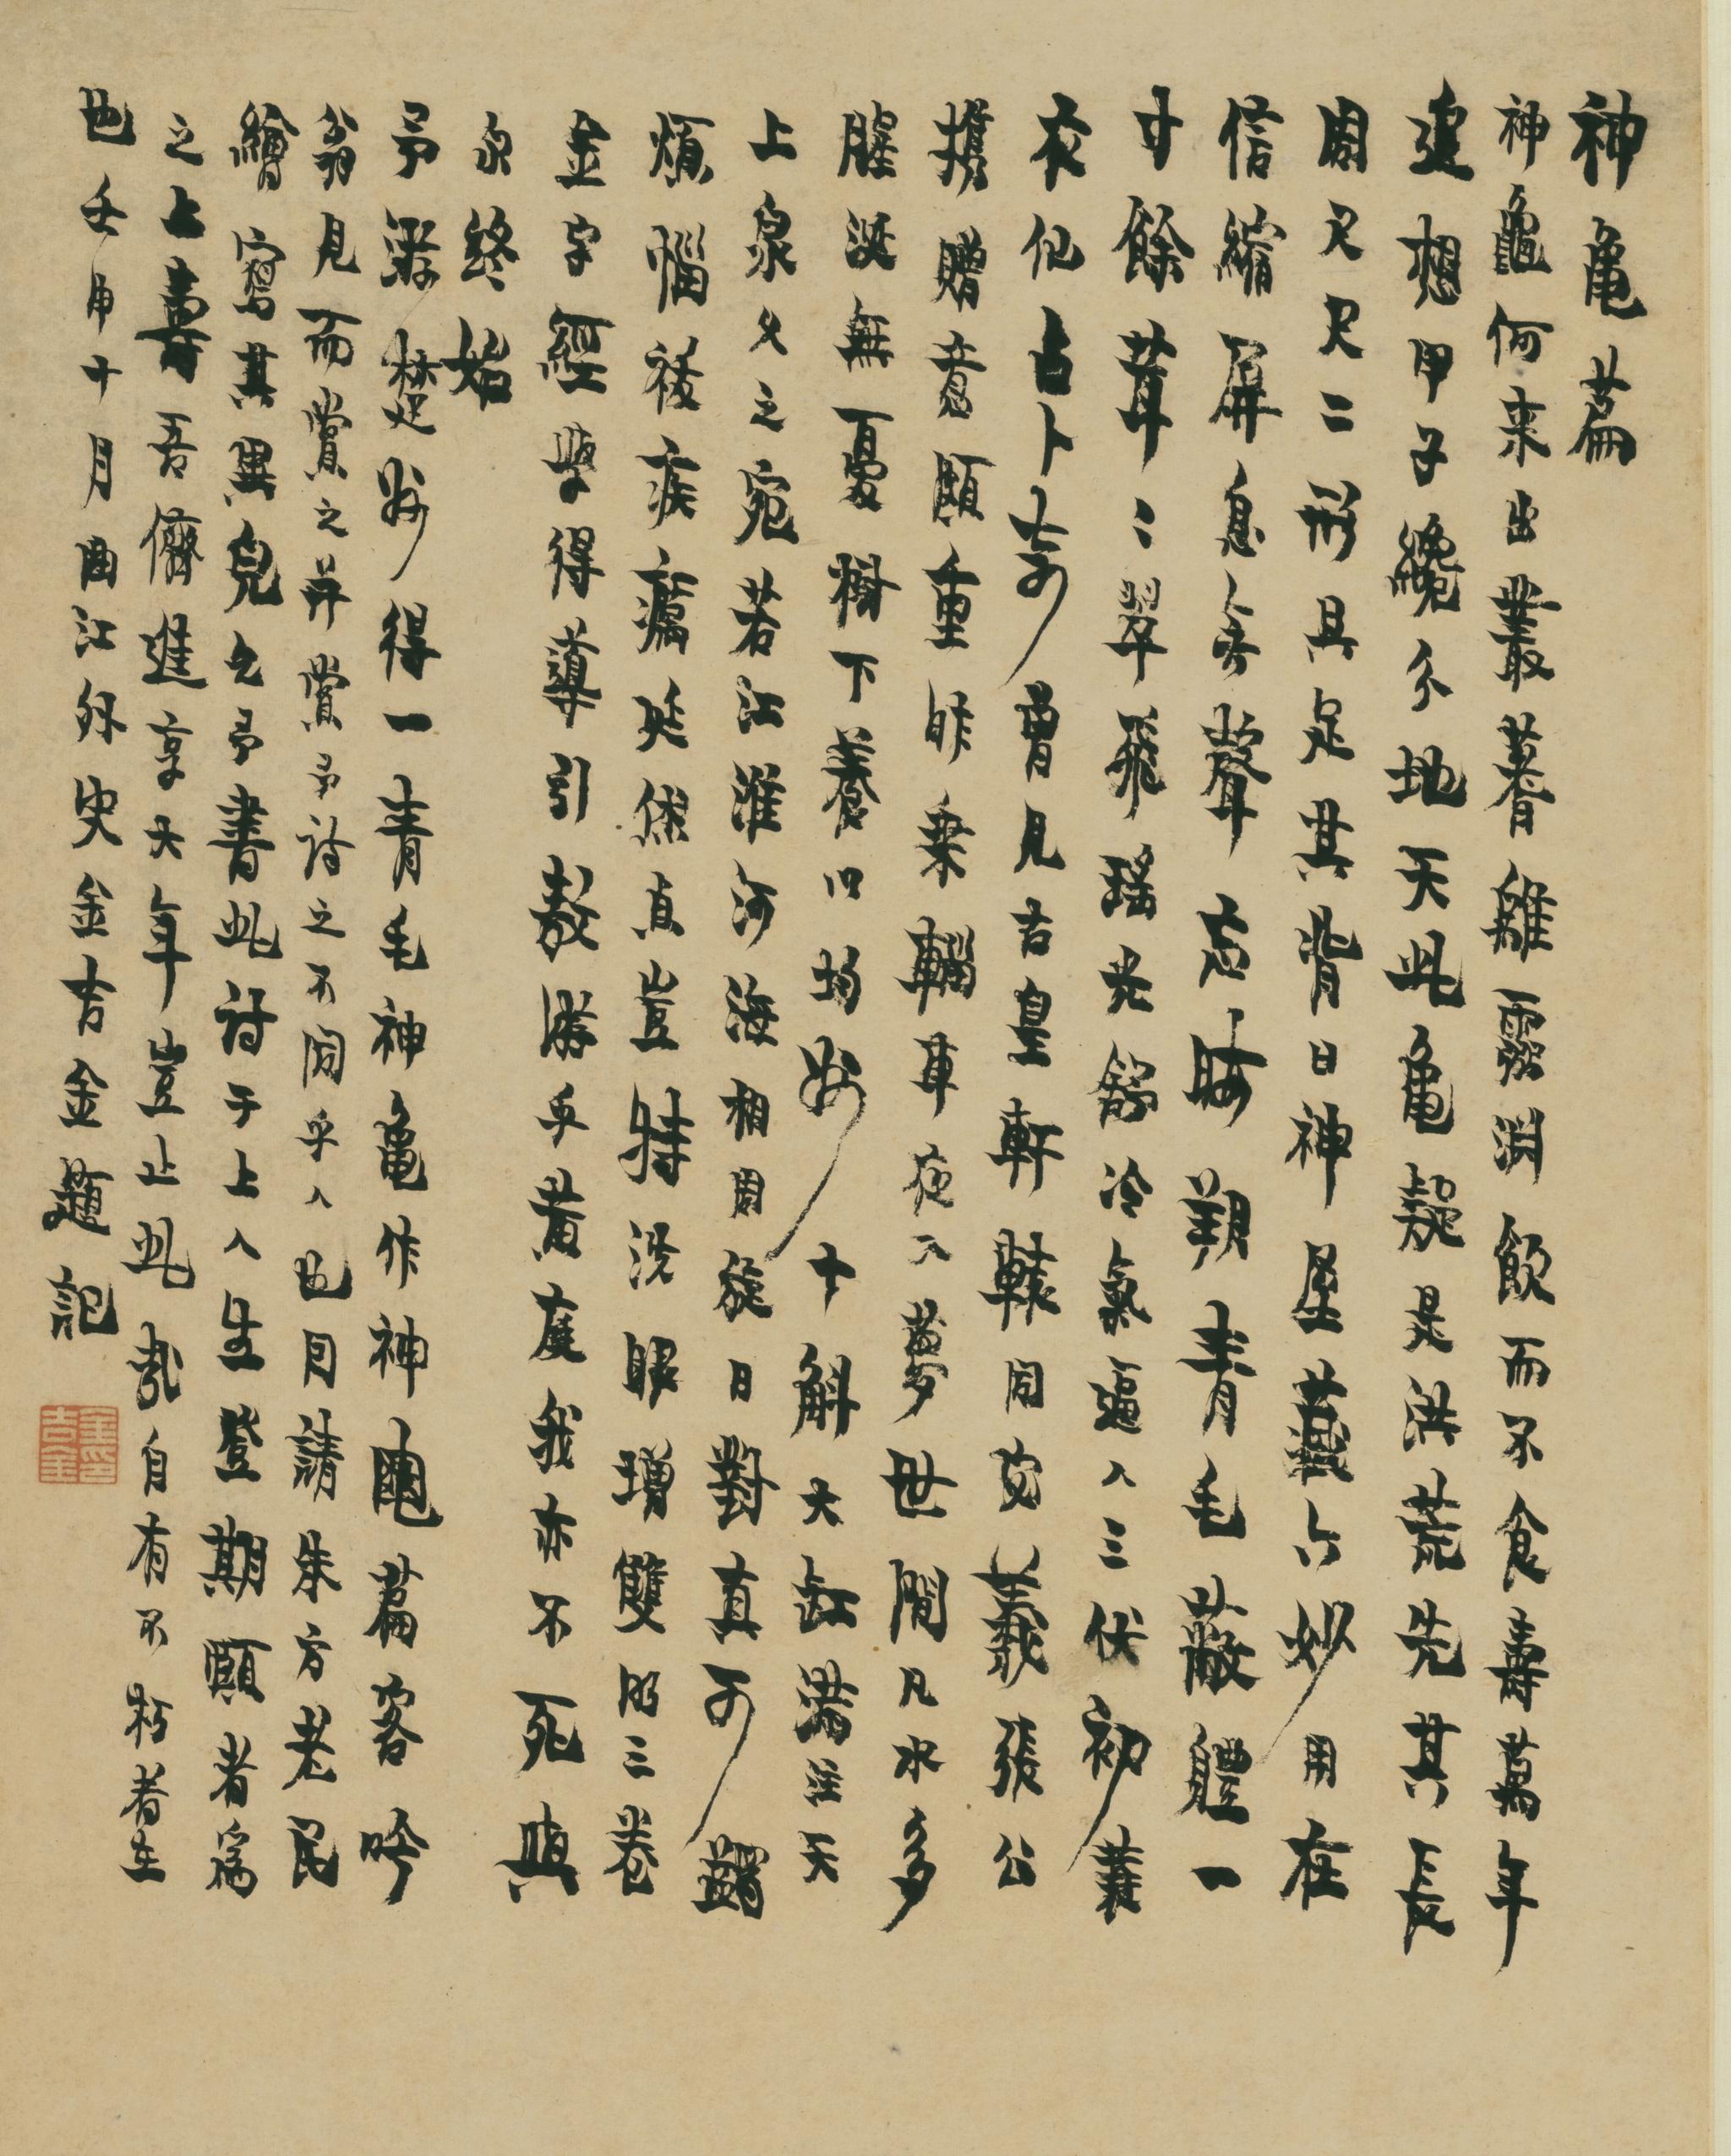 神龜篇
神龜何来出叢蓍離靈渊飲而不食壽萬年
追想甲子纔分地天此龜疑是洪荒先其長
周尺尺二形具足其背曰神屋藏六妙用在
信縮屏息無聲忘晦朔青毛蔽體一
寸餘茸〻翠飛瑤光舒冷氣逼人三伏初蓑
衣他占卜奇曾見古皇軒轅同宓羲張公
攜贈意頗重昨乘輜車夜入夢世間凡水多
腥涎無憂樹下養以均安十斛大缸满注天
上泉久之宛若江淮河海相周旋日對真可蠲
煩惱祓疾癘延休真豈特洗眼增雙明三卷
金字經學得導引教勝乎黄庭我亦不死與
永終始
予游楚州得一青毛神龜作神龜篇客吟
翁見而賞之并賞予詩之不同乎人也因請朱方老民
繪寫其異皃也予書此詩于上人生登期頤者為
之上壽吾儕進享大年豈止此哉自有不朽者在
也壬申十月曲江外史金吉金記
金吉金印